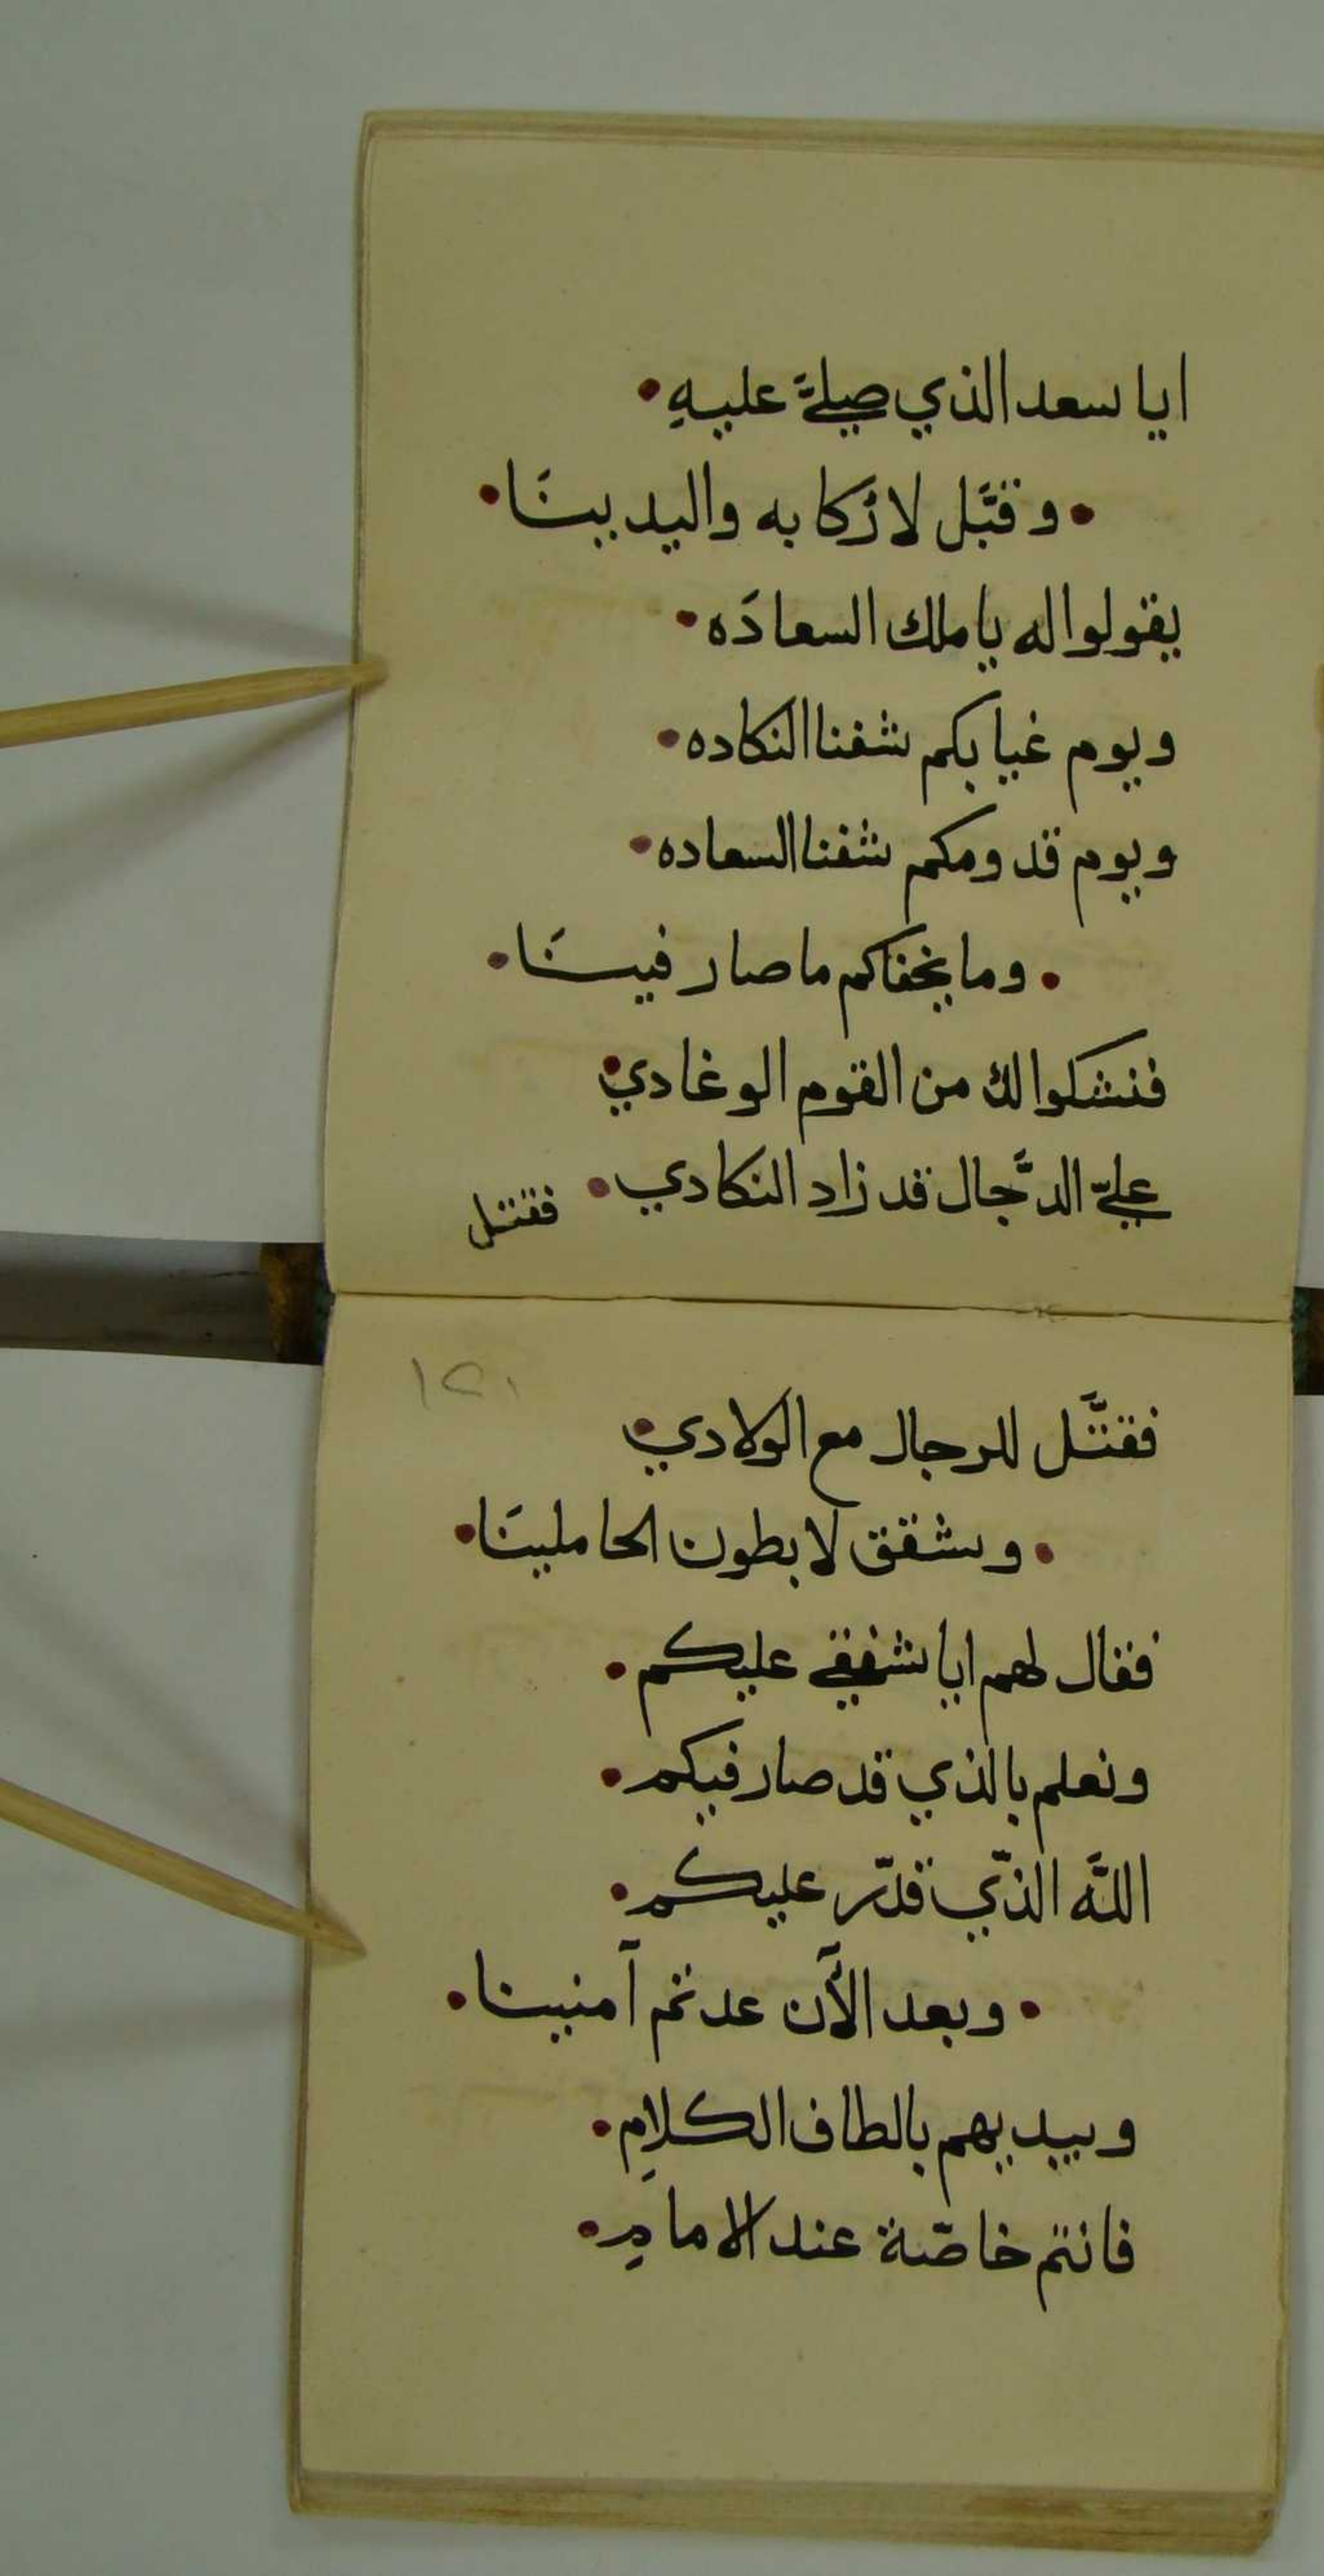 ايا سعد الذي صلىَّ عليهِ •
• وقبَّل لارُكابه واليدينَا •
يقولوا له يا ملك السعادَه •
ويوم غيابكم شفنا النكاده •
ويوم قدومكم شفنا السعاده •
• وما يخفاكم ما صار فينَا •
فنشكوا لك من القوم الوغادي •
عليّ الدَّجال قد زاد النكادي •
فقتل
١٢١
فقتَّل للرجال مع الولادي •
• وشقق لابطون الحاملينَا •
فقال لهم ايا شفقي عليكم •
ونعلم بالذي قد صار فيكم •
اللَّه الذّي قدّر عليكم •
• وبعد الأَن عدتم آمنينا •
ويبديهم بالطاف الكلامِ •
فانتم خاصّة عند الامامِ •